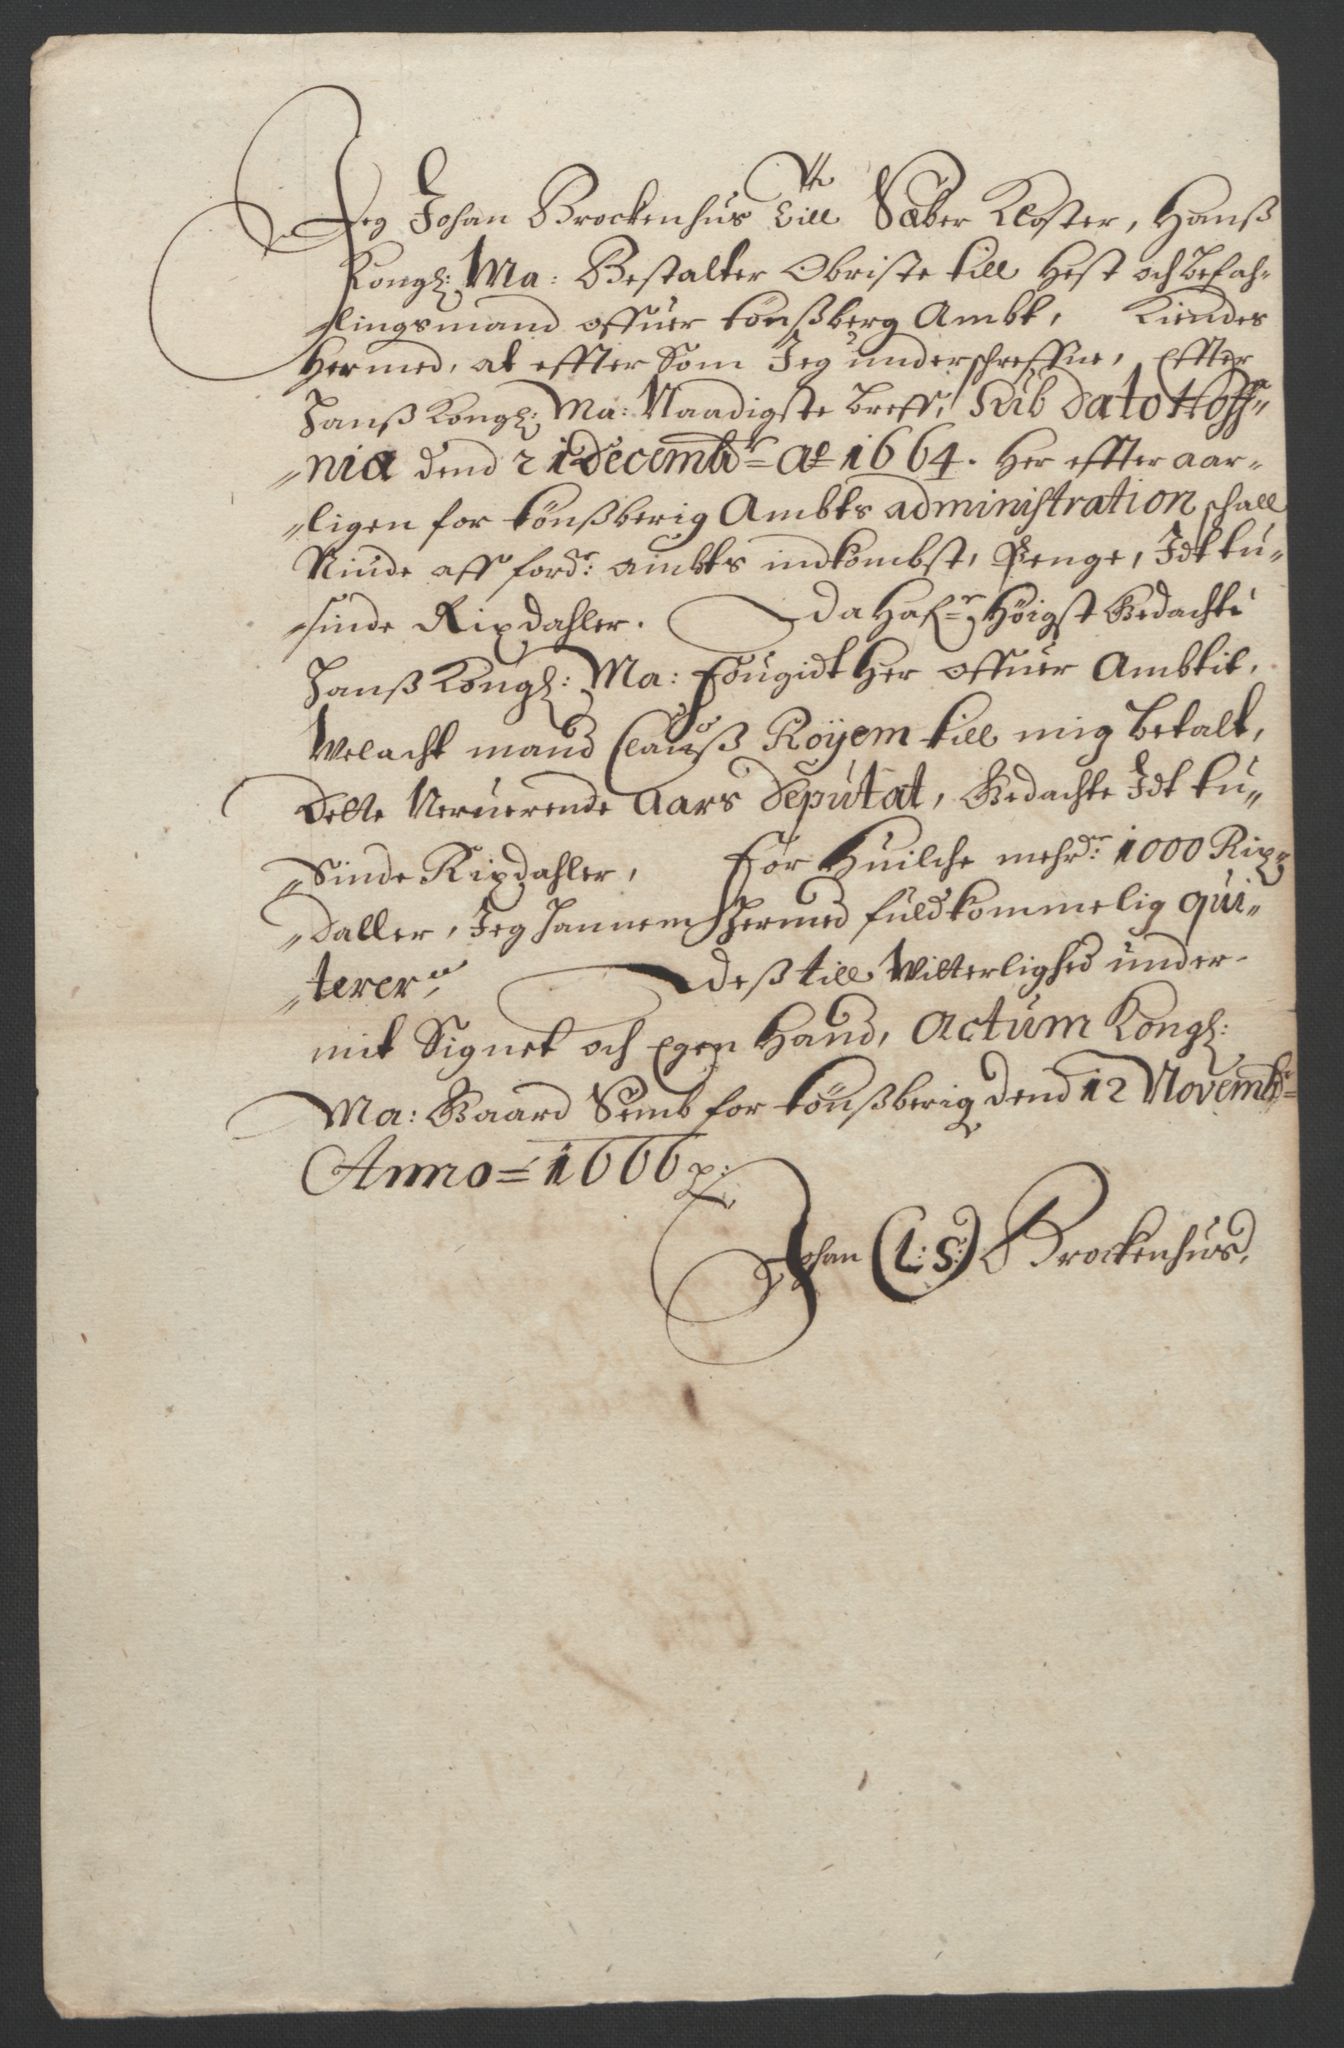 Jeg Johan Brockenhus till Sæber Kloster, Hanß
Kongl: Ma: Bestalter Obriste till Hest och befah-
lingsmand offuer tönßberg Ambt, Kiendes
Hermed, at effter Som Jeg underschreffne, Effter
Hanß Kongl: Ma: Naadigste breff, Sub Dato Hoff-
nia dend 21 Decembr: Ao 1664. Her effter aar-
ligen for tönßberig Ambts administration schall
Niude aff fordr: ambts indkombst, Penge, Idt tu-
sinde Rixdahler. Da Hafr Höigst Bedachte
Hanß Kongl: Ma: Fougidt Her offuer Ambtit,
Welacht mand Clauß Röyem till mig betalt,
Dette Neruerende Aars Deputat, Bedachte Idt tu-
Sinde Rixdahler, For Huilche mehrdr: 1000 Rix-
Daller, Jeg Hannem Hermed fuldkommelig qui-
terer, Deß till Witterlighed under
mit Signet och Egen Hand, Actum Kongl:
Ma: Gaard Semb for tönßberig dend 12 Novembr:
Anno = 1666
Johan (L:S:) Brockenhus,